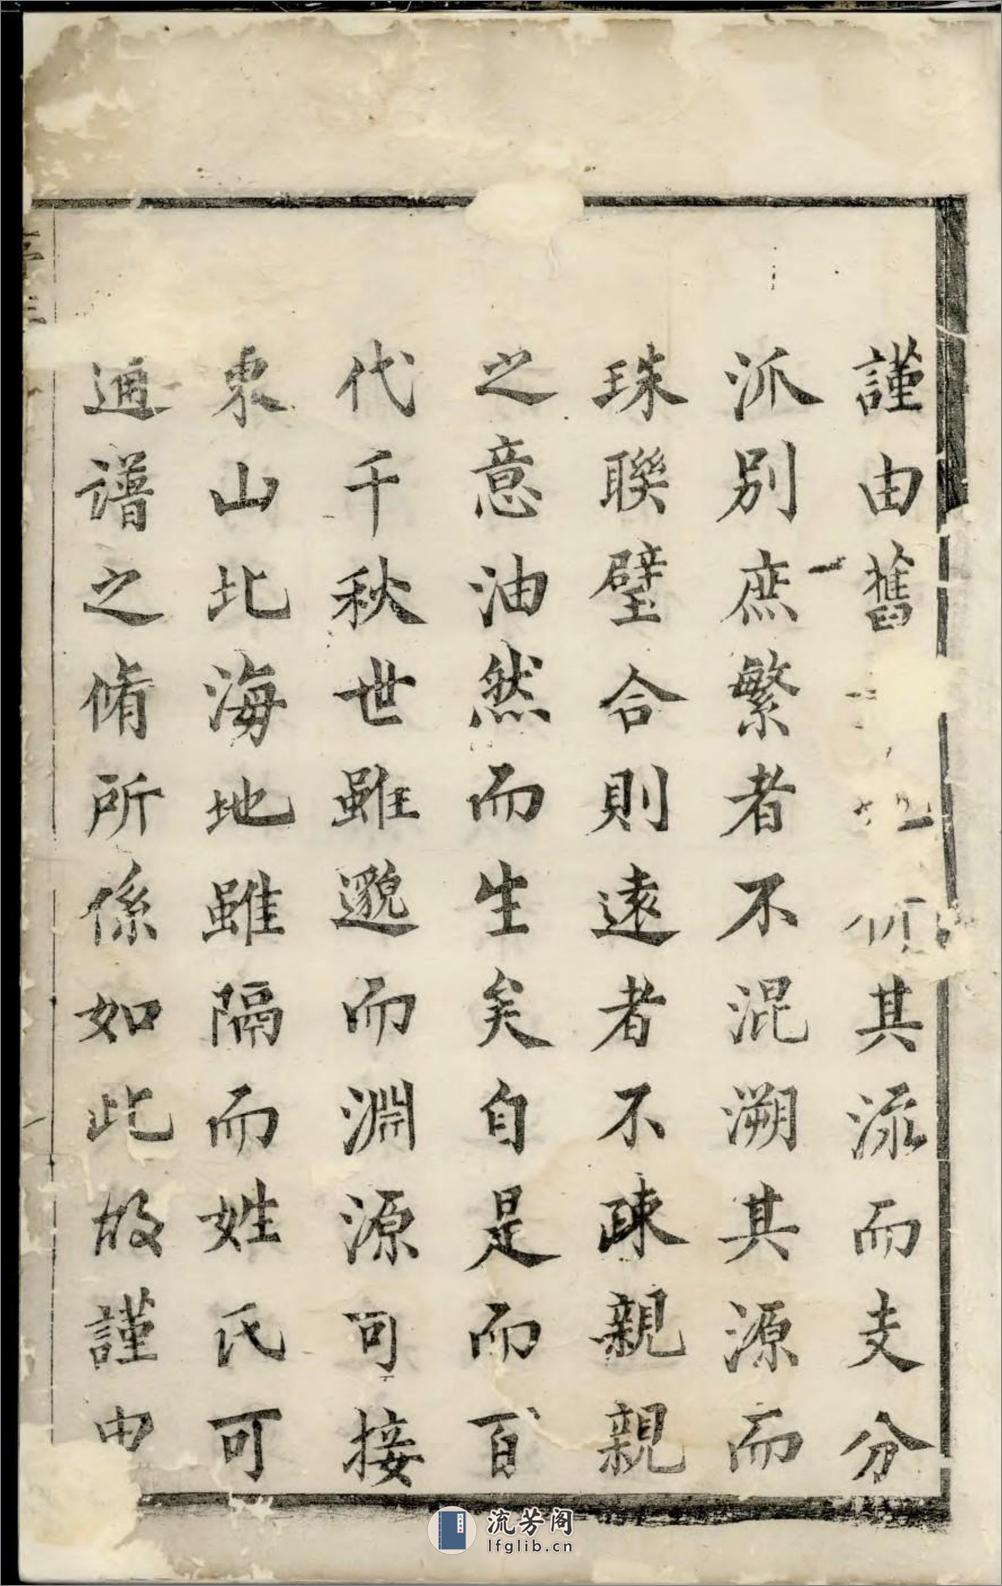 謹由舊其流而支分
派别庶繁者不混溯其源而
珠聯璧合則遠者不疎親親
之意油然而生矣自是而百
代千秋世雖邈而淵源可接
東山北海地雖隔而姓氏可
通譜之脩所係如此故謹由
流芳阁
lfglib.cn